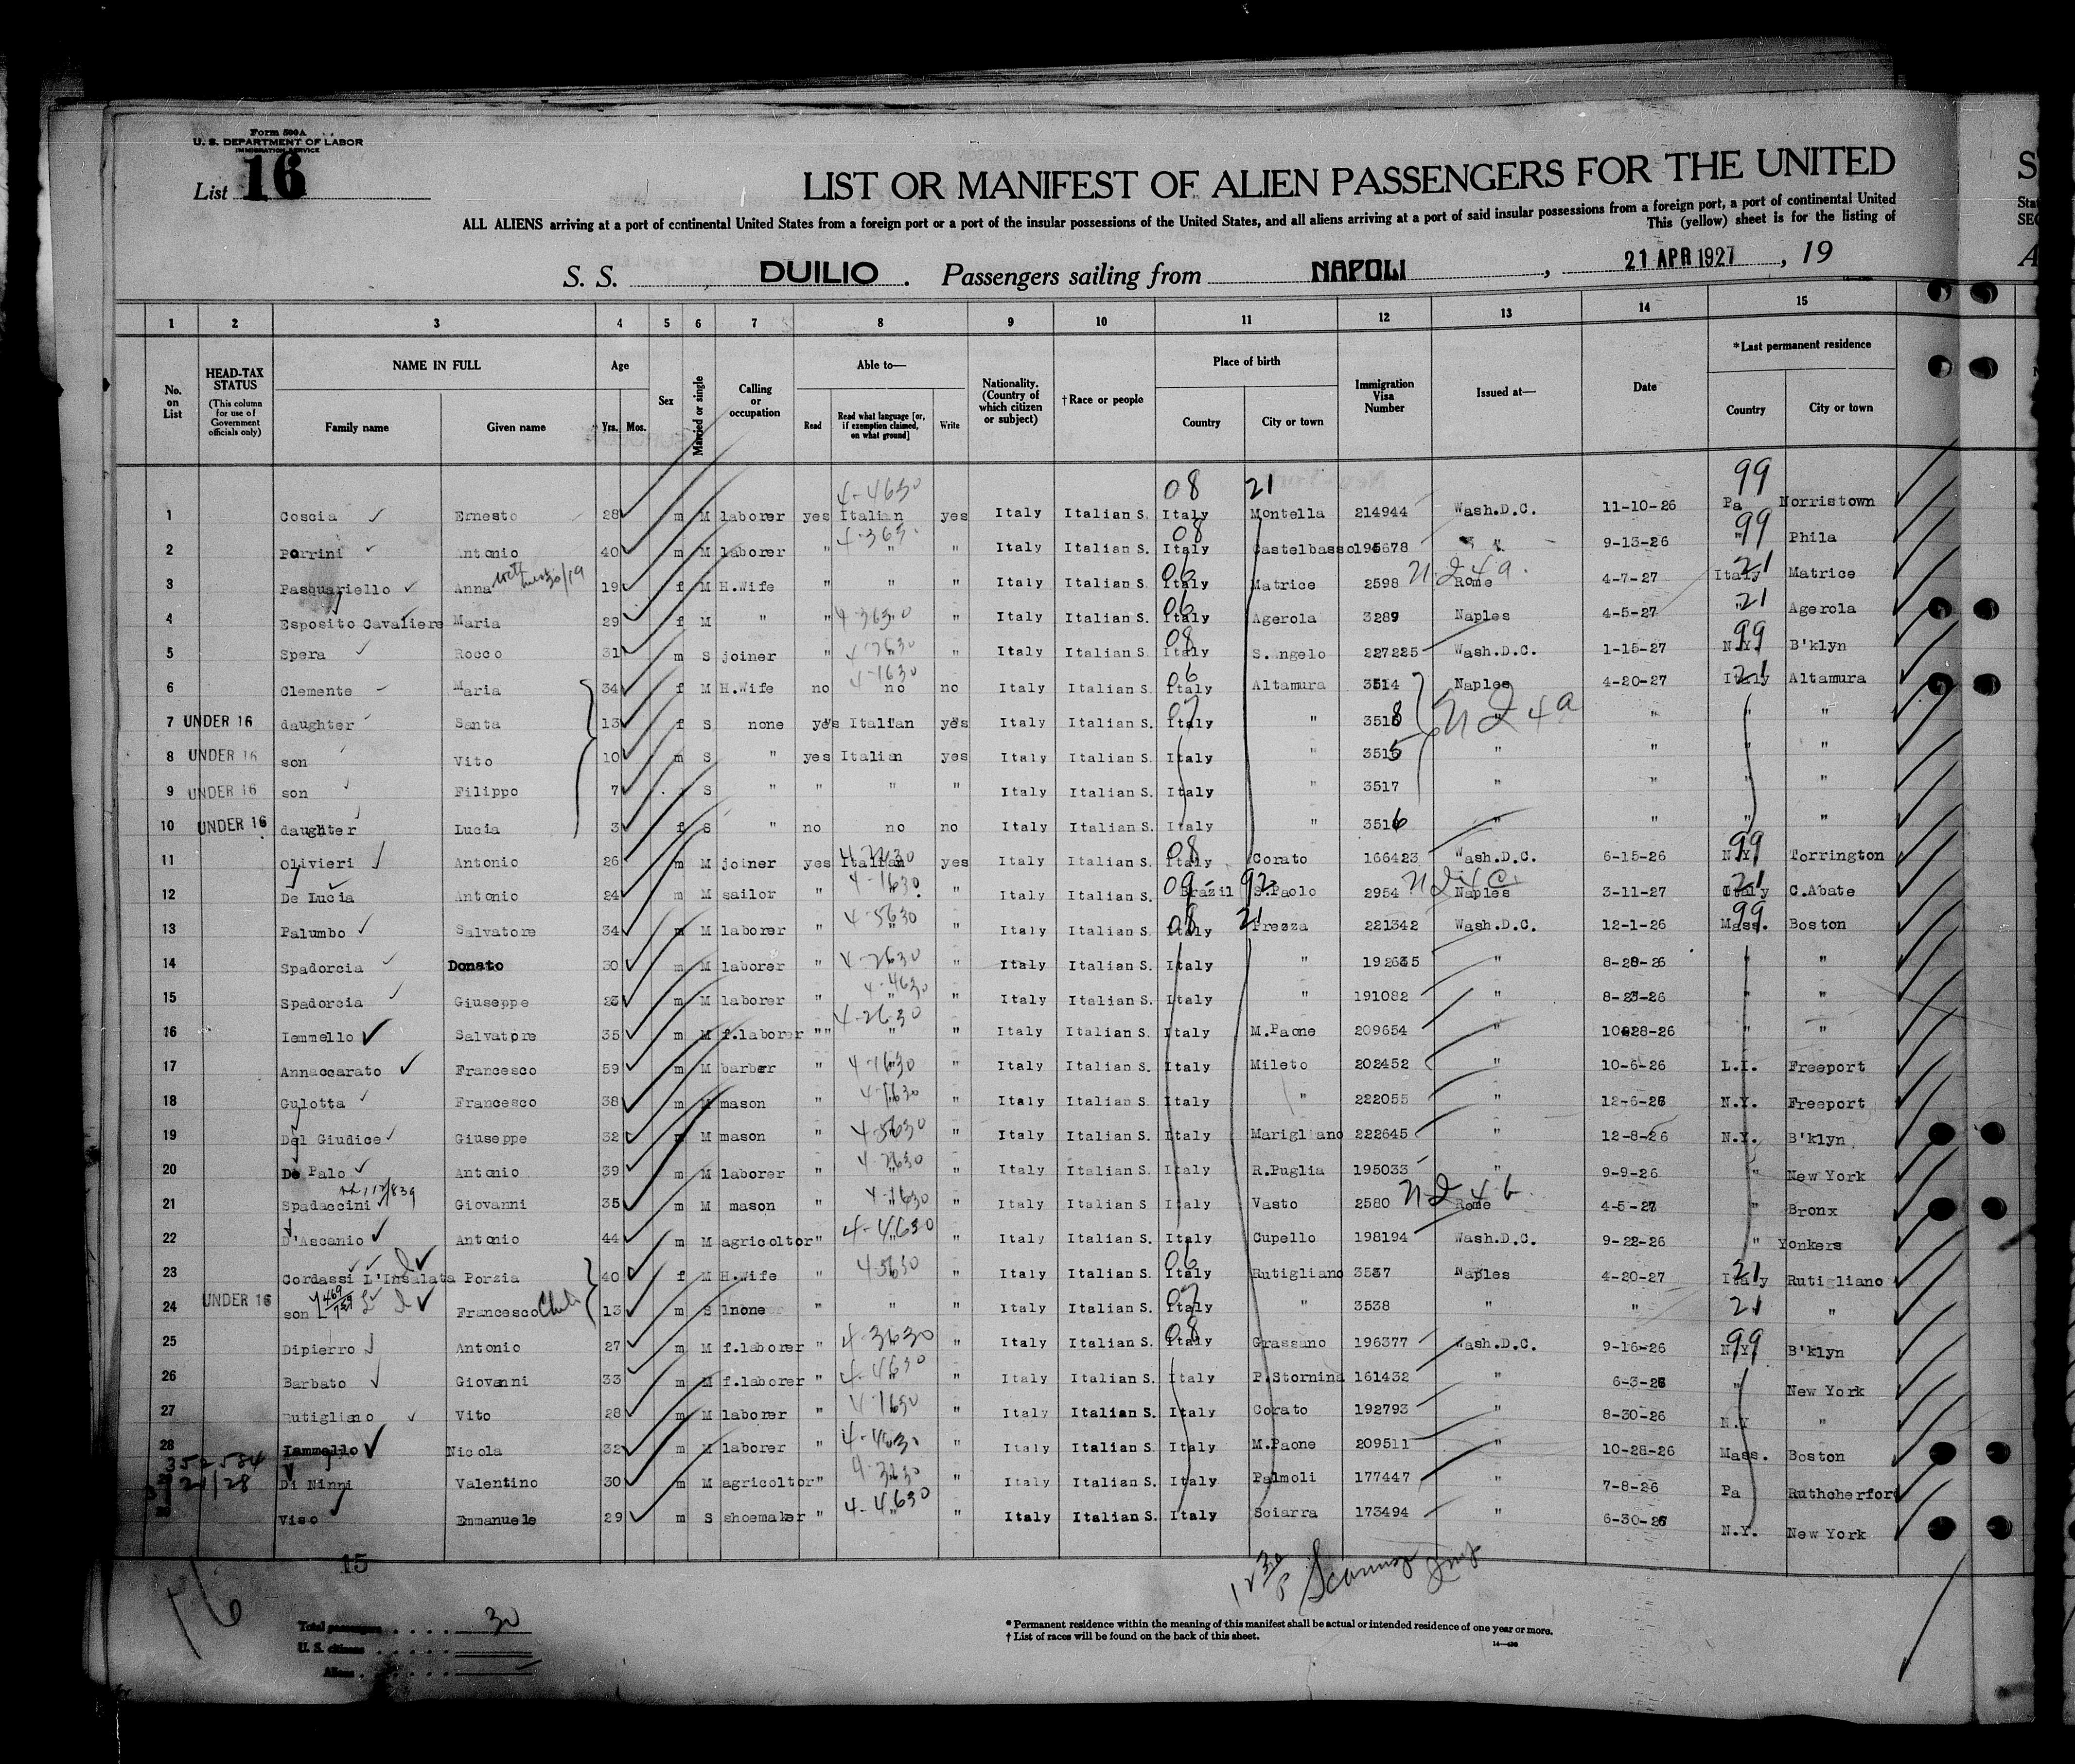 Form 500A
U. S. DEPARTMENT OF LABOR
IMMIGRATION SERVICE
List 16
LIST OR MANIFEST OF ALIEN PASSENGERS FOR THE UNITED
ALL ALIENS arriving at a port of continental United States from a foreign port or a port of the insular possessions of the United States, and all aliens arriving at a port of said insular possessions from a foreign port, a port of continental United
This (yellow) sheet is for the listing of
S. S. DUILIO . Passengers sailing from NAPOLI , 21 APR 1927 , 19
1 2 3 4 5 6 7 8 9 10 11 12 13 14 15
No. on List
HEAD-TAX STATUS (This column for use of Government officials only)
NAME IN FULL
Family name Given name
Age
Yrs. Mos.
Sex
Married or single
Calling or occupation
Able to—
Read Read what language [or, if exemption claimed, on what ground] Write
Nationality. (Country of which citizen or subject)
†Race or people
Place of birth
Country City or town
Immigration Visa Number
Issued at—
Date
*Last permanent residence
Country City or town
4-4630 08 21 99
1 Coscia Ernesto 28 m M laborer yes Italian yes Italy Italian S. Italy Montella 214944 Wash.D.C. 11-10-26 Pa Norristown
08 99
2 Porrini Antonio 40 m M laborer " " " Italy Italian S. Italy Castelbasso 195678 " " 9-13-26 " Phila
06 21
3 Pasquariello Anna 19 f M H.Wife " " " Italy Italian S. Italy Matrice 2598 Rome 4-7-27 Italy Matrice
4-3630 06 21
4 Esposito Cavaliere Maria 29 f M " " " " Italy Italian S. Italy Agerola 3289 Naples 4-5-27 " Agerola
4-2630 08 99
5 Spera Rocco 31 m S joiner " " " Italy Italian S. Italy S.Angelo 227225 Wash.D.C. 1-15-27 N.Y. B'klyn
4-1630 06 21
6 Clemente Maria 34 f M H.Wife no no no Italy Italian S. Italy Altamura 3514 Naples 4-20-27 Italy Altamura
07
7 UNDER 16 daughter Santa 13 f S none yes Italian yes Italy Italian S. Italy " 3518 " " " "
8 UNDER 16 son Vito 10 m S " yes Italian yes Italy Italian S. Italy " 3515 " " " "
9 UNDER 16 son Filippo 7 S " " " " Italy Italian S. Italy " 3517 " " " "
10 UNDER 16 daughter Lucia 3 f S " no no no Italy Italian S. Italy " 3516 " " " "
08 99
11 Olivieri Antonio 26 m M joiner yes Italian yes Italy Italian S. Italy Corato 166423 Wash.D.C. 6-15-26 N.Y. Torrington
4-1630 09 92 21
12 De Lucia Antonio 24 m M sailor " " Italy Italian S. Brazil S.Paolo 2954 Naples 3-11-27 Italy C.Abate
4-5630 08 21 99
13 Palumbo Salvatore 34 m M laborer " " " Italy Italian S. Italy Prezza 221342 Wash.D.C. 12-1-26 Mass. Boston
4-2630
14 Spadorcia Donato 30 m M laborer " " " Italy Italian S. Italy " 192635 " 8-28-26 " "
4-4630
15 Spadorcia Giuseppe m M laborer " " " Italy Italian S. Italy " 191082 " " "
4-2630
16 Iemmello Salvatore 35 m M f.laborer "" " Italy Italian S. Italy M.Paone 209654 " " "
4-1630
17 Annaccarato Francesco 59 m M barber " " " Italy Italian S. Italy Mileto 202452 " 10-6-26 L.I. Freeport
18 Gulotta Francesco 38 m M mason " " Italy Italian S. Italy " 222055 " 12-6-26 N.Y. Freeport
4-5630
19 Del Giudice Giuseppe 32 m M mason " " Italy Italian S. Italy Marigliano 222645 " 12-8-26 N.Y. B'klyn
4-2630
20 De Palo Antonio 39 m M laborer " " " Italy Italian S. Italy R.Puglia 195033 " 9-9-26 " New York
4-1630
21 Spadaccini Giovanni 35 m M mason " " " Italy Italian S. Italy Vasto 2580 Rome 4-5-27 " Bronx
4-4630
22 D'Ascanio Antonio 44 m M agricoltor " " " Italy Italian S. Italy Cupello 198194 Wash.D.C. 9-22-26 " Yonkers
06 21
23 Cordassi L'Insalata Porzia 40 f M H.Wife " " Italy Italian S. Italy Rutigliano 3537 Naples 4-20-27 Italy Rutigliano
07 21
24 UNDER 16 son Francesco 13 m S none " " " Italy Italian S. Italy " 3538 " " "
4-3630 08 99
25 Dipierro Antonio 27 m M f.laborer " " Italy Italian S. Italy Grassano 196377 Wash.D.C. 9-16-26 N.Y. B'klyn
4-4630
26 Barbato Giovanni 33 m M f.laborer " " Italy Italian S. Italy P.Stornina 161432 " 6-3-26 " New York
4-1630
27 Rutigliano Vito 28 m M laborer " " Italy Italian S. Italy Corato 192793 " 8-30-26 N.Y "
28 Iammello Nicola 32 m M laborer " " Italy Italian S. Italy M.Paone 209511 " 10-28-26 Mass. Boston
4-3630
Di Ninni Valentino 30 m M agricoltor " " Italy Italian S. Italy Palmoli 177447 " 7-8-26 Pa Ruthcherford
4-4630
Viso Emmanuele 29 m S shoemaker " " " Italy Italian S. Italy Sciarra 173494 " 6-30-26 N.Y. New York
15
16
Total passengers 30
U. S. citizens
Aliens
* Permanent residence within the meaning of this manifest shall be actual or intended residence of one year or more.
† List of races will be found on the back of this sheet.